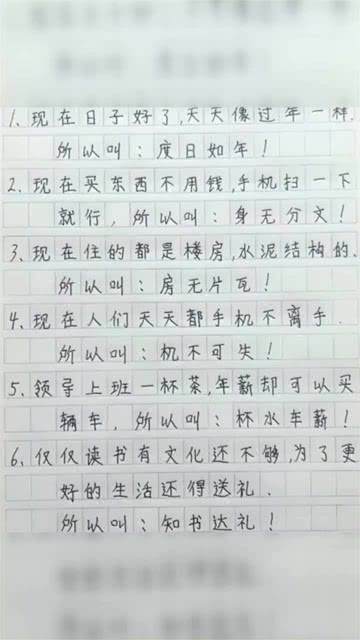 1、现在日子好了,天天像过年一样.
所以叫：度日如年！
2、现在买东西不用钱,手机扫一下
就行，所以叫：身无分文！
3、现在住的都是楼房,水泥结构的.
所以叫：房无片瓦！
4、现在人们天天都手机不离手.
所以叫：机不可失！
5、领导上班一杯茶,年薪却可以买
辆车，所以叫：杯水车薪！
6、仅仅读书有文化还不够,为了更
好的生活还得送礼.
所以叫：知书达礼！